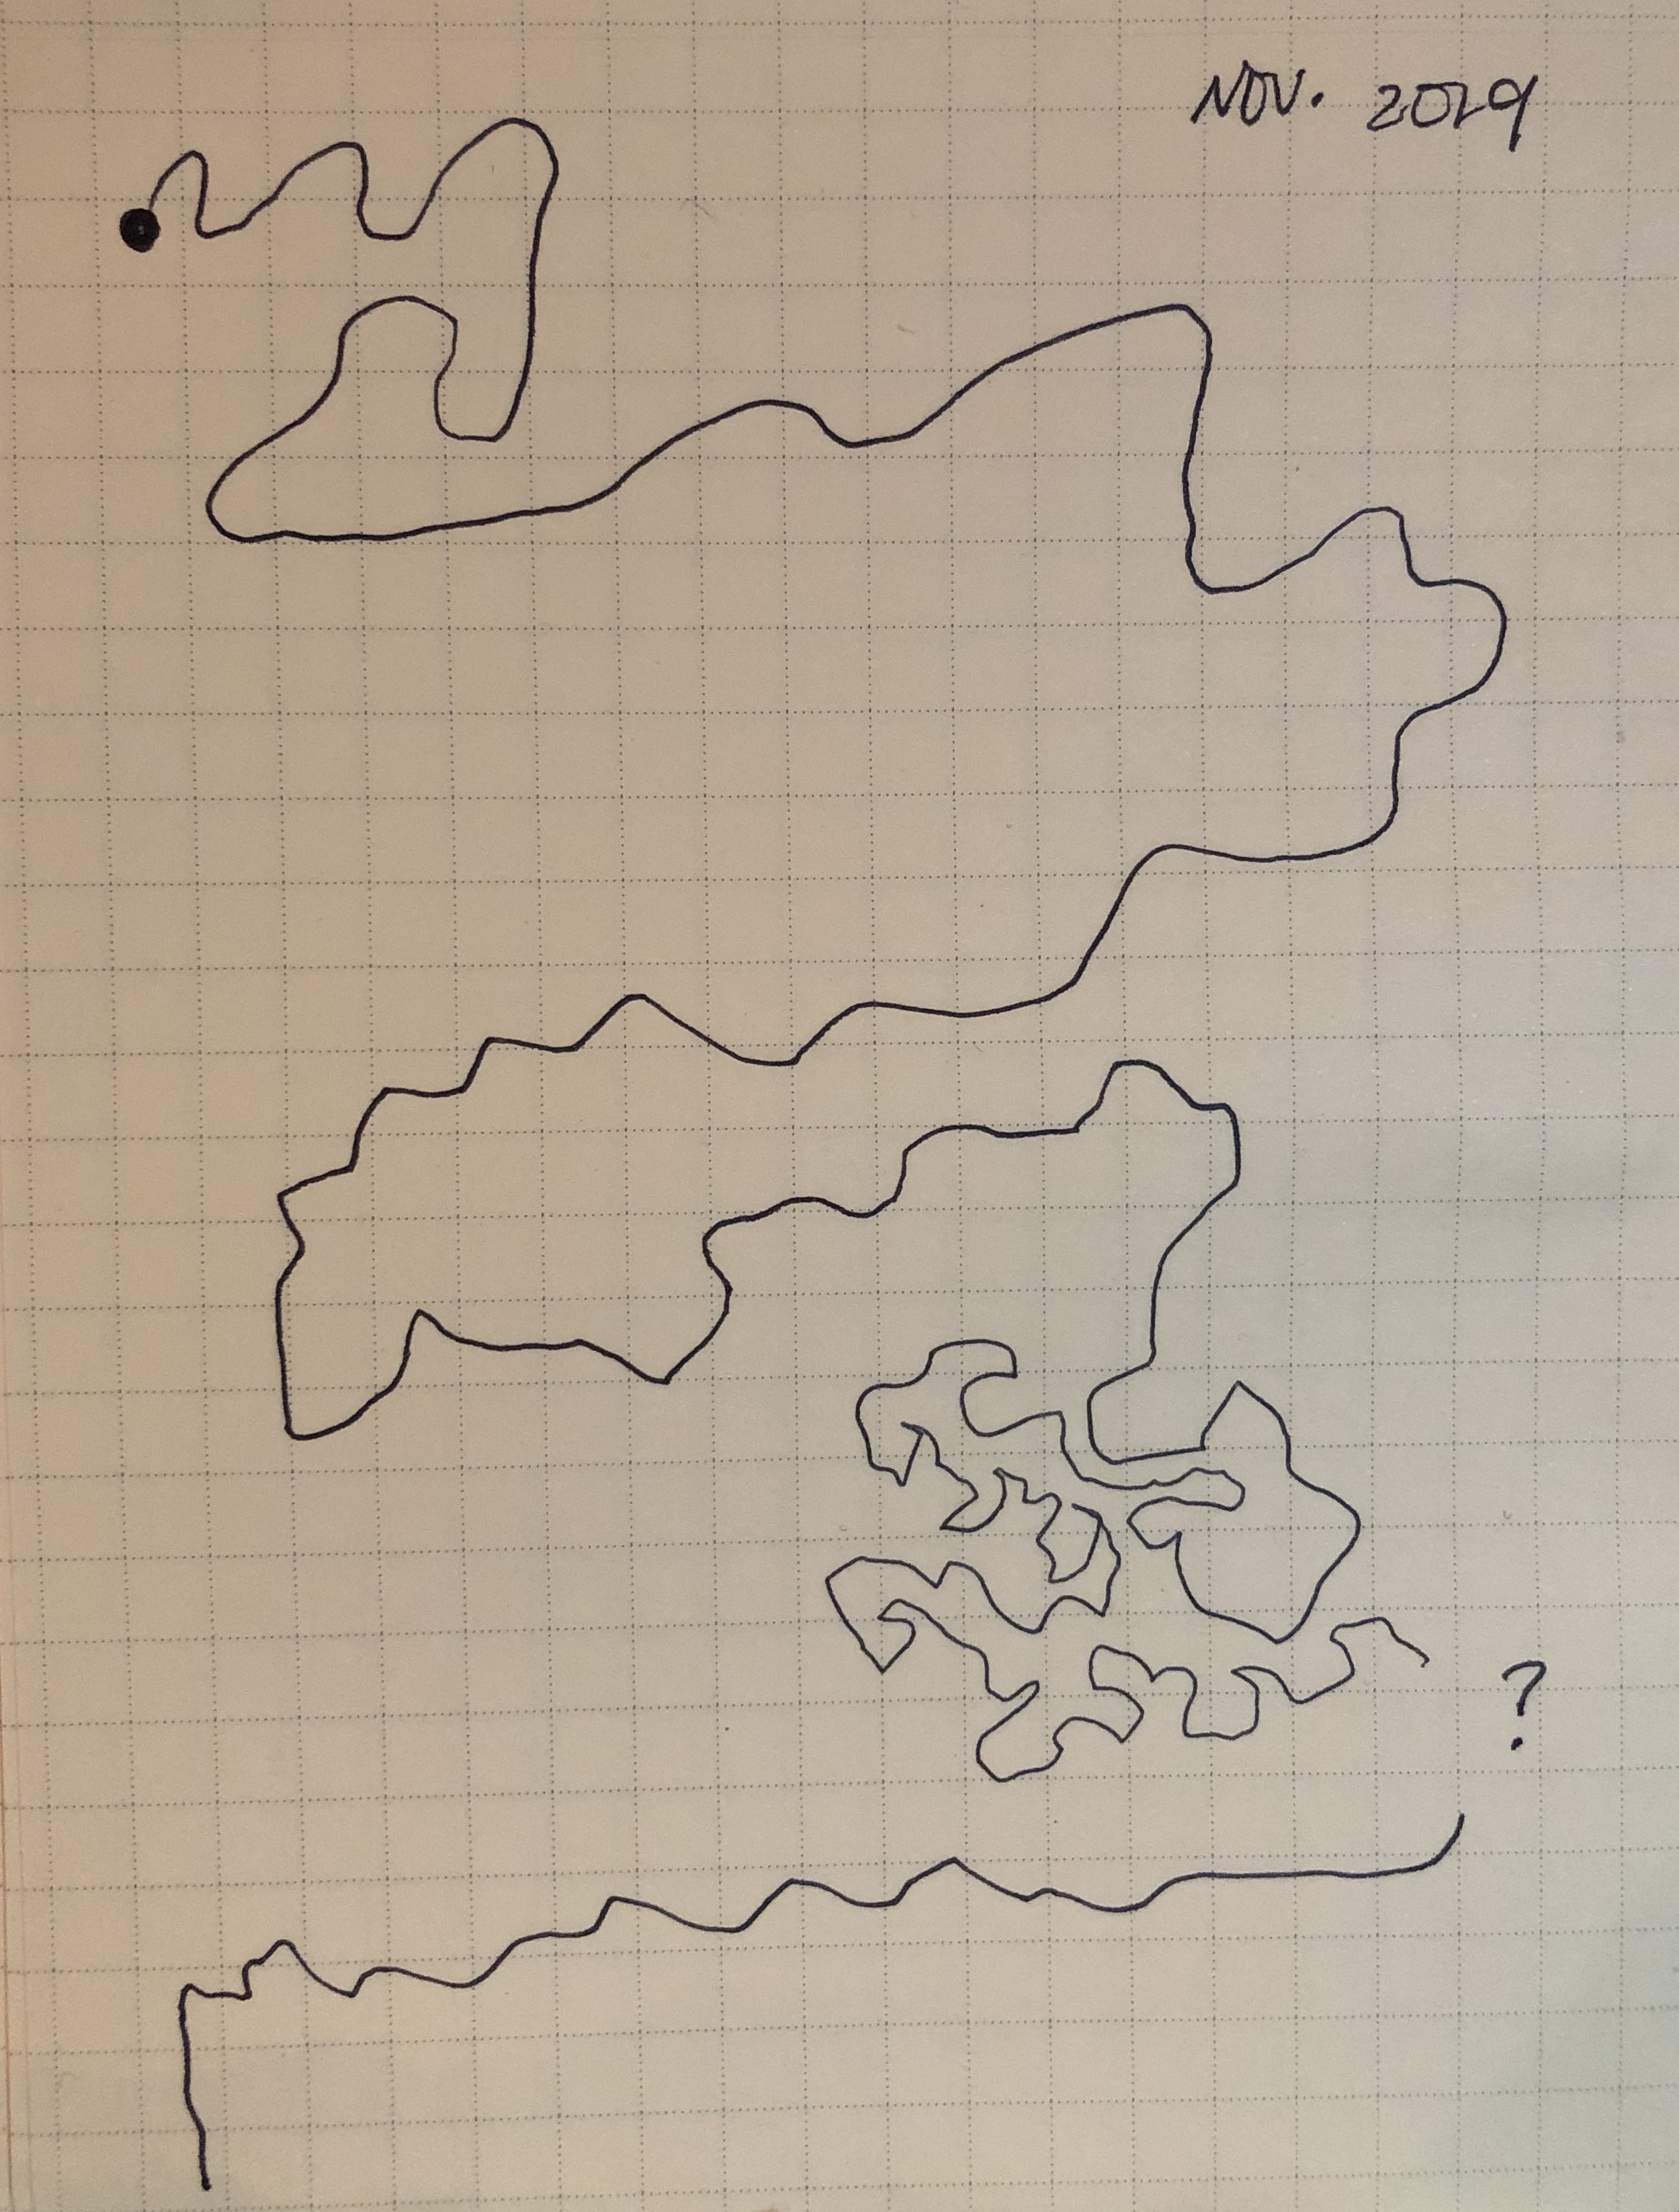 NOV. 2019
?